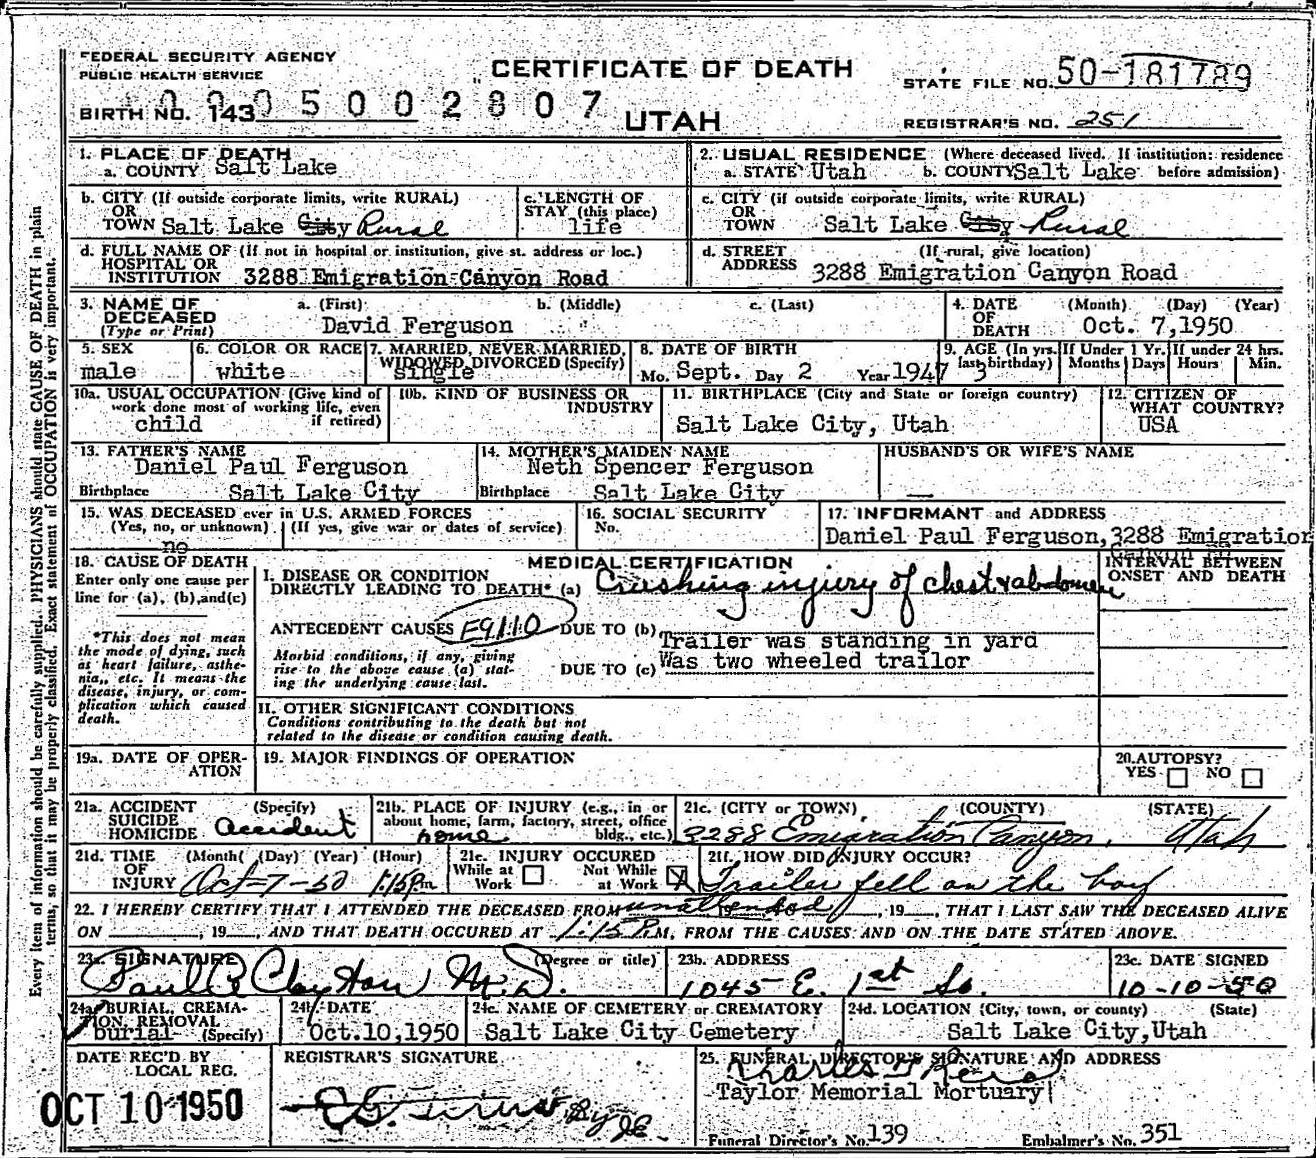 FEDERAL SECURITY AGENCY
PUBLIC HEALTH SERVICE
CERTIFICATE OF DEATH
STATE FILE NO. 50-181789
BIRTH NO. 143 05002807
UTAH
REGISTRAR'S NO. 251
1. PLACE OF DEATH
a. COUNTY Salt Lake
2. USUAL RESIDENCE (Where deceased lived. If institution: residence before admission)
a. STATE Utah b. COUNTY Salt Lake
b. CITY (If outside corporate limits, write RURAL)
OR
TOWN Salt Lake City Rural
c. LENGTH OF
STAY (this place)
life
c. CITY (if outside corporate limits, write RURAL)
OR
TOWN Salt Lake City Rural
d. FULL NAME OF (If not in hospital or institution, give st. address or loc.)
HOSPITAL OR
INSTITUTION 3288 Emigration Canyon Road
d. STREET (If rural, give location)
ADDRESS 3288 Emigration Canyon Road
3. NAME OF DECEASED
(Type or Print)
a. (First) b. (Middle) c. (Last)
David Ferguson
4. DATE OF DEATH (Month) (Day) (Year)
Oct. 7,1950
5. SEX
male
6. COLOR OR RACE
white
7. MARRIED, NEVER MARRIED,
WIDOWED, DIVORCED (Specify)
single
8. DATE OF BIRTH
Mo. Sept. Day 2 Year 1947
9. AGE (In yrs. last birthday) 3
If Under 1 Yr. Months Days
If under 24 hrs. Hours Min.
10a. USUAL OCCUPATION (Give kind of
work done most of working life, even
if retired)
child
10b. KIND OF BUSINESS OR
INDUSTRY
11. BIRTHPLACE (City and State or foreign country)
Salt Lake City, Utah
12. CITIZEN OF
WHAT COUNTRY?
USA
13. FATHER'S NAME
Daniel Paul Ferguson
Birthplace Salt Lake City
14. MOTHER'S MAIDEN NAME
Neth Spencer Ferguson
Birthplace Salt Lake City
HUSBAND'S OR WIFE'S NAME
—
15. WAS DECEASED ever in U.S. ARMED FORCES
(Yes, no, or unknown) (If yes, give war or dates of service)
no
16. SOCIAL SECURITY
No.
17. INFORMANT and ADDRESS
Daniel Paul Ferguson, 3288 Emigration
Canyon Rd
18. CAUSE OF DEATH
Enter only one cause per
line for (a), (b), and (c)
*This does not mean
the mode of dying, such
as heart failure, asthe-
nia, etc. It means the
disease, injury, or com-
plication which caused
death.
MEDICAL CERTIFICATION
INTERVAL BETWEEN
ONSET AND DEATH
I. DISEASE OR CONDITION
DIRECTLY LEADING TO DEATH* (a) Crushing injury of chest & abdomen
ANTECEDENT CAUSES E911.0 DUE TO (b) Trailer was standing in yard
Morbid conditions, if any, giving
rise to the above cause (a) stat-
ing the underlying cause last.
DUE TO (c) Was two wheeled trailor
II. OTHER SIGNIFICANT CONDITIONS
Conditions contributing to the death but not
related to the disease or condition causing death.
19a. DATE OF OPER-
ATION
19. MAJOR FINDINGS OF OPERATION
20. AUTOPSY?
YES NO
21a. ACCIDENT (Specify)
SUICIDE
HOMICIDE accident
21b. PLACE OF INJURY (e.g., in or
about home, farm, factory, street, office
bldg., etc.)
home
21c. (CITY or TOWN) (COUNTY) (STATE)
3288 Emigration Canyon. Utah
21d. TIME (Month) (Day) (Year) (Hour)
OF
INJURY Oct-7-50 1:15 Pm
21e. INJURY OCCURED
While at Work Not While at Work X
21f. HOW DID INJURY OCCUR?
Trailer fell on the boy
22. I HEREBY CERTIFY THAT I ATTENDED THE DECEASED FROM unattended, 19__ TO , 19__, THAT I LAST SAW THE DECEASED ALIVE
ON , 19__, AND THAT DEATH OCCURED AT 1:15 P.M, FROM THE CAUSES AND ON THE DATE STATED ABOVE.
23a. SIGNATURE (Degree or title)
Paul R Clayton M.D.
23b. ADDRESS
1045 E. 1st So.
23c. DATE SIGNED
10-10-50
24a. BURIAL, CREMA-
TION, REMOVAL
(Specify)
burial
24b. DATE
Oct.10,1950
24c. NAME OF CEMETERY or CREMATORY
Salt Lake City Cemetery
24d. LOCATION (City, town, or county) (State)
Salt Lake City,Utah
DATE REC'D BY
LOCAL REG.
OCT 10 1950
REGISTRAR'S SIGNATURE
By
25. FUNERAL DIRECTOR'S SIGNATURE AND ADDRESS
Charles
Taylor Memorial Mortuary
Funeral Director's No. 139 Embalmer's No. 351
Every item of information should be carefully supplied. PHYSICIANS should state CAUSE OF DEATH in plain
terms, so that it may be properly classified. Exact statement of OCCUPATION is very important.